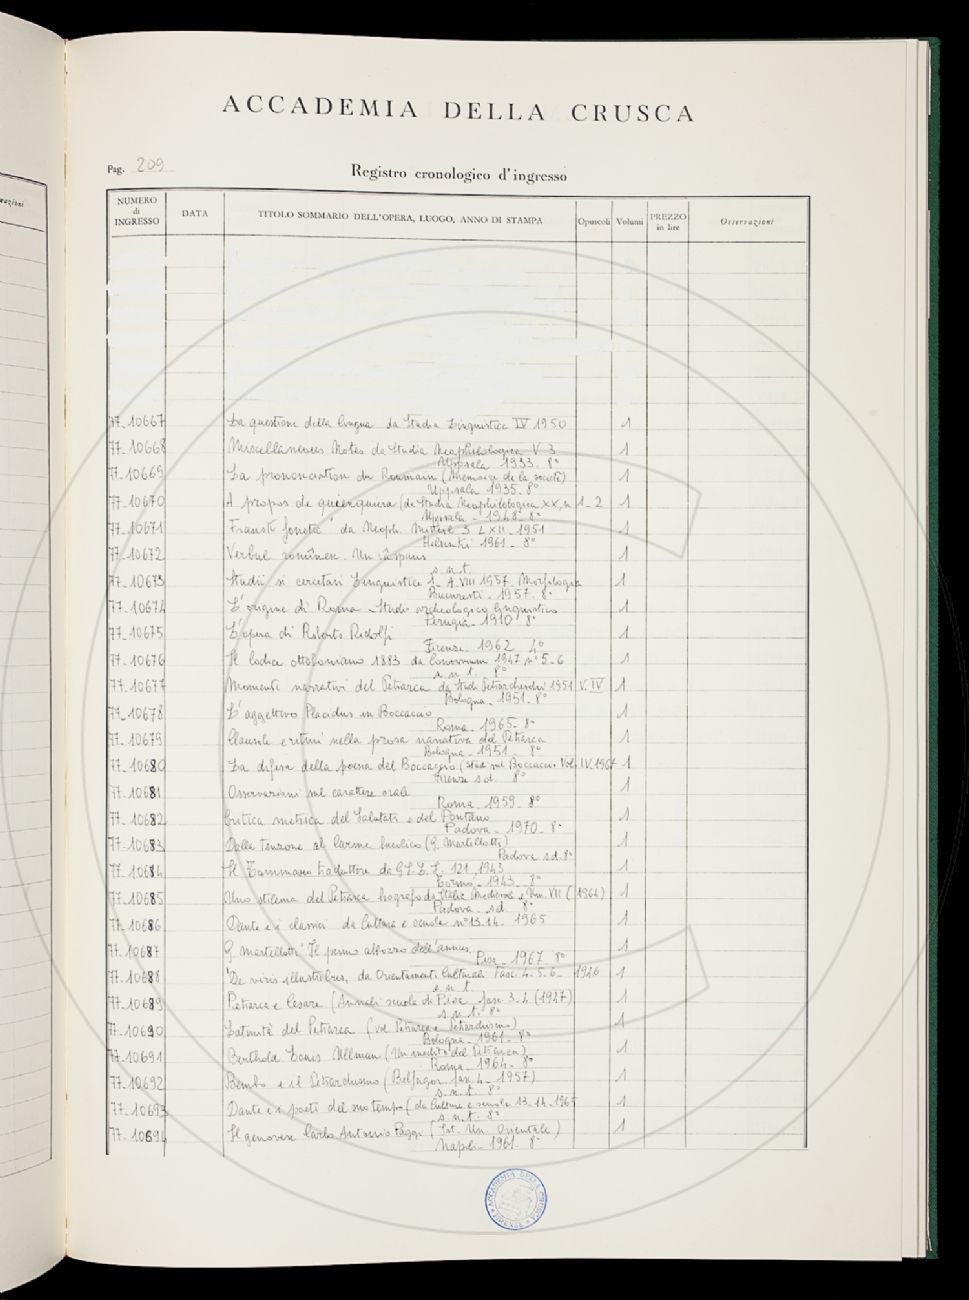 ACCADEMIA DELLA CRUSCA
Pag. 209
Registro cronologico d'ingresso
NUMERO di INGRESSO DATA TITOLO SOMMARIO DELL'OPERA, LUOGO, ANNO DI STAMPA Opuscoli Volumi PREZZO in lire Osservazioni
77-10667 La questione della lingua da Studia Linguistica IV 1950 1
77-10668 Miscellaneous Notes da Studia Neophilologica V. 3 1
Uppsala 1933. 8°
77-10669 La prononciation du Roumain (Memoire de la société) 1
Uppsala 1935. 8°
77-10670 A propos de (de Studia Neophilologica XX, n 1-2 1
Uppsala - 1948. 8°
77-10671 da Neoph. Mitteil 3 LXII - 1951 1
Helsinki 1961 - 8°
77-10672 Verbul romînesc. Un 1
s.n.t.
77-10673 Studii si cercetari Linguistice 1- A. VIII 1957 Morfologia 1
Bucuresti - 1957. 8°
77-10674 L'origine di Roma - Studio archeologico linguistico 1
Perugia - 1910 8°
77-10675 L'opera di Roberto Ridolfi 1
Firenze 1962 4°
77-10676 Il codice ottoboniano 1883 da 1947 n° 5-6 1
s.n.t. 8°
77-10677 Momenti narrativi del Petrarca da Studi Petrarcheschi 1951 V. IV 1
Bologna - 1951. 8°
77-10678 L'aggettivo Placidus in Boccaccio 1
Roma - 1965 - 8°
77-10679 Clausole e ritmi nella prosa narrativa del Petrarca 1
Bologna - 1951. 8°
77-10680 La difesa della poesia del Boccaccio (Studi sul Boccaccio Vol. IV. 1967 1
Firenze s.d. 8°
77-10681 Osservazioni sul carattere orale 1
Roma - 1959. 8°
77-10682 Critica metrica del Salutati e del Pontano 1
Padova - 1970 - 8°
77-10683 Dalla tenzone al carme bucolico (G. Martellotti) 1
Padova s.d. 8°
77-10684 Il Tommaseo traduttore da G.S.L.I. 121, 1943 1
Torino - 1943 - 8°
77-10685 Uno stilema del Petrarca biografo da Italia Medievale e Um. VII (1964) 1
Padova - s.d. 8°
77-10686 Dante e i classici da Cultura e scuola n° 13-14 - 1965 1
77-10687 G. Martellotti "Il primo abbozzo dell'annus 1
Pisa - 1967 8°
77-10688 "De viris illustribus, da Orientamenti Culturali Fasc. 4.5.6 - 1946 1
s.n.t.
77-10689 Petrarca e Cesare (Annali scuola di Pisa fasc. 3.4 (1947) 1
s.n.t. 8°
77-10690 Latinità del Petrarca (vol Petrarca e Petrarchismo) 1
Bologna - 1961. 8°
77-10691 Berthold Louis Ullman (Un inedito del Petrarca) 1
Roma - 1964 - 8°
77-10692 Bembo e il Petrarchismo (Belfagor fasc. 4 - 1957) 1
s.n.t. 8°
77-10693 Dante e i poeti del suo tempo (da Cultura e scuola 13-14-1965 1
s.n.t. 8°
77-10694 Il genovese Carlo Antonio Paggi (Ist. Un. Orientale) 1
Napoli - 1961. 8°
ACCADEMIA DELLA CRUSCA FIRENZE